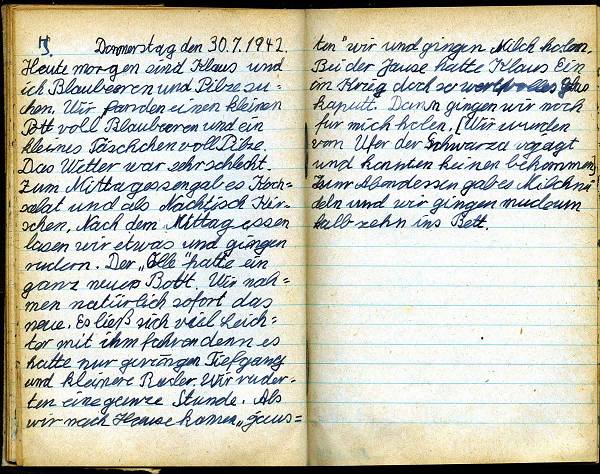 Donnerstag den 30.7.1942.
Heute morgen sind Klaus und
ich Blaubeeren und Pilze su-
chen. Wir fanden einen kleinen
Pott voll Blaubeeren und ein
kleines Täschchen voll Pilze.
Das Wetter war sehr schlecht.
Zum Mittagessen gab es Koch=
salat und als Nachtisch Kir-
schen. Nach dem Mittagessen
lasen wir etwas und gingen
rudern. Der „Olle" hatte ein
ganz neues Bott. Wir nah-
men natürlich sofort das
neue. Es ließ sich viel leich-
ter mit ihm fahren denn es
hatte nur geringen Tiefgang
und kleinere Ruder. Wir ruder-
ten eine ganze Stunde. Als
wir nach Hause kamen „jaus=
ten" wir und gingen Milch holen.
Bei der Jause hatte Klaus Ein
im Krieg doch so wertvolles
kaputt. Dann gingen wir noch
für mich holen. [Wir wurden
vom Ufer der Schwarza
und konnten keinen bekommen
Zum Abendessen gab es Milchnu
deln und wir gingen müde um
halb zehn ins Bett.